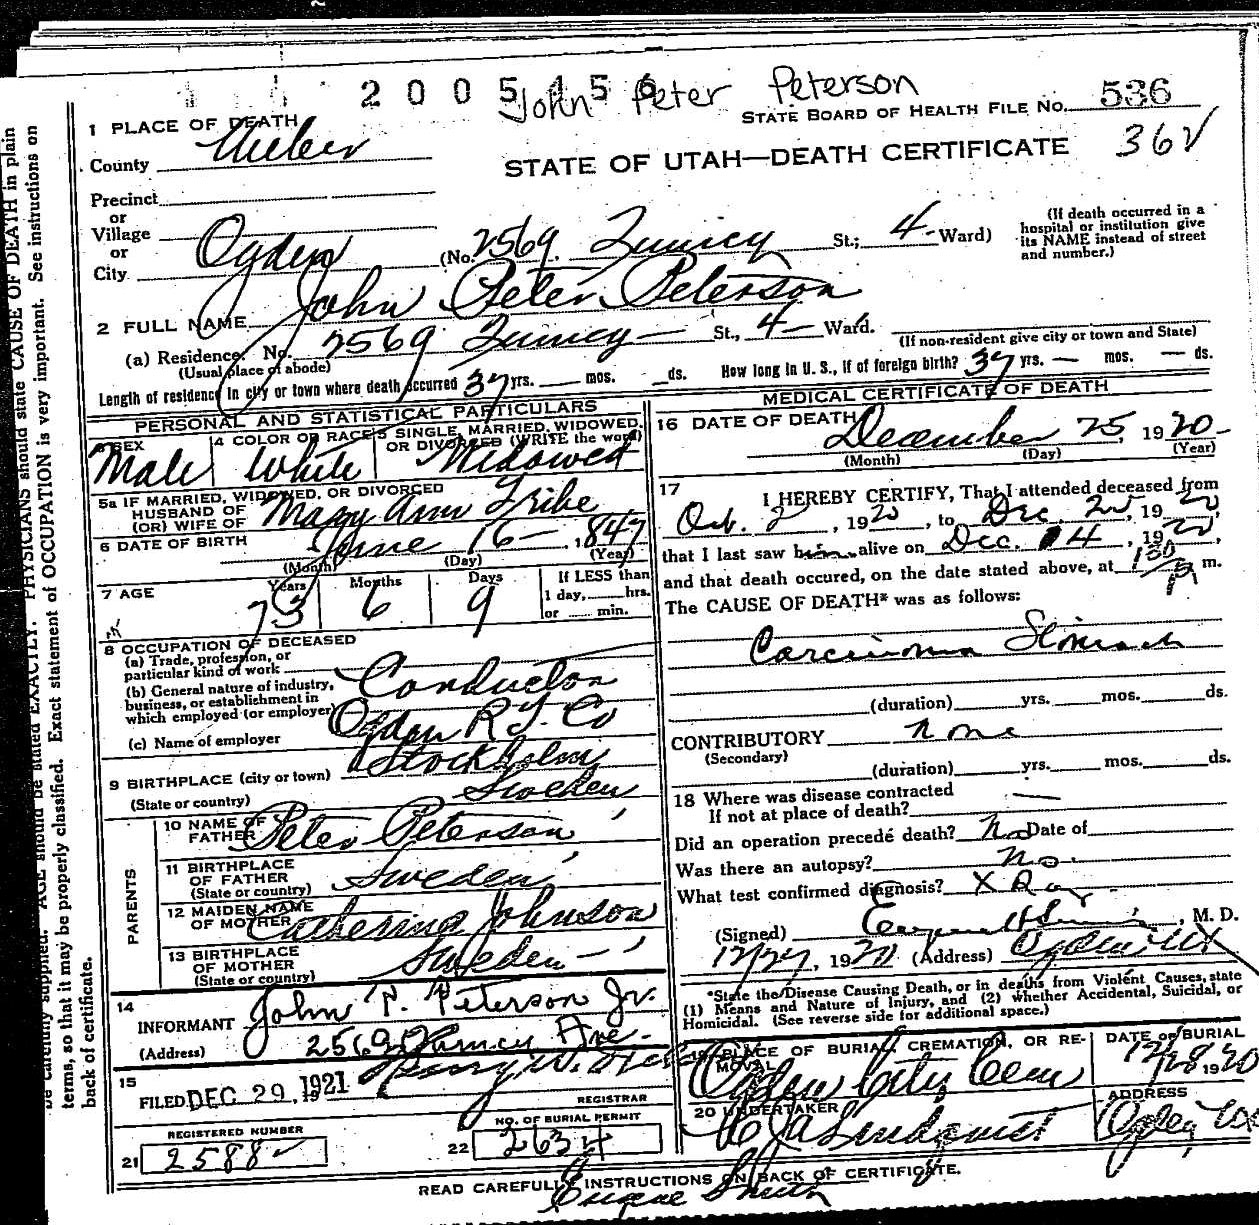 2005456
John Peter Peterson
STATE BOARD OF HEALTH FILE NO. 536
1 PLACE OF DEATH
County Weber
STATE OF UTAH—DEATH CERTIFICATE 36
Precinct
or
Village
or
City Ogden (No. 2569 Quincy St.; 4 Ward)
(If death occurred in a hospital or institution give its NAME instead of street and number.)
2 FULL NAME John Peter Peterson
(a) Residence. No. 2569 Quincy St., 4 Ward.
(Usual place of abode) (If non-resident give city or town and State)
Length of residence in city or town where death occurred 37 yrs. — mos. ds. How long in U. S., if of foreign birth? 37 yrs. — mos. — ds.
PERSONAL AND STATISTICAL PARTICULARS
3 SEX 4 COLOR OR RACE 5 SINGLE, MARRIED, WIDOWED, OR DIVORCED (WRITE the word)
Male White Widowed
5a IF MARRIED, WIDOWED, OR DIVORCED
HUSBAND OF
(OR) WIFE OF Mary Ann Tribe
6 DATE OF BIRTH June 16 — , 1847
(Month) (Day) (Year)
7 AGE Years Months Days If LESS than
73 6 9 1 day, hrs.
or min.
8 OCCUPATION OF DECEASED
(a) Trade, profession, or
particular kind of work Conductor
(b) General nature of industry,
business, or establishment in
which employed (or employer)
Ogden R Co
(c) Name of employer
9 BIRTHPLACE (city or town) Stockholm
(State or country) Sweden
PARENTS
10 NAME OF
FATHER Peter Peterson
11 BIRTHPLACE
OF FATHER
(State or country) Sweden
12 MAIDEN NAME
OF MOTHER Catherina Johnson
13 BIRTHPLACE
OF MOTHER
(State or country) Sweden —
14 INFORMANT John P. Peterson Jr.
(Address) 2569 Quincy Ave.
15 FILED DEC 29, 1921 Harry W.
REGISTRAR
REGISTERED NUMBER NO. OF BURIAL PERMIT
21 2588 22 2634
MEDICAL CERTIFICATE OF DEATH
16 DATE OF DEATH December 25, 1920
(Month) (Day) (Year)
17 I HEREBY CERTIFY, That I attended deceased from
Oct. 2, 1920, to Dec. 20, 1920,
that I last saw him alive on Dec. 4, 1920,
and that death occured, on the date stated above, at 130 P m.
The CAUSE OF DEATH* was as follows:
Carcinoma Stomach
(duration) yrs. mos. ds.
CONTRIBUTORY none
(Secondary)
(duration) yrs. mos. ds.
18 Where was disease contracted
If not at place of death? —
Did an operation precede death? No Date of
Was there an autopsy? no.
What test confirmed diagnosis? X Ray
(Signed) , M. D.
12/27, 1920 (Address) Ogden Ut
*State the Disease Causing Death, or in deaths from Violent Causes, state
(1) Means and Nature of Injury, and (2) whether Accidental, Suicidal, or
Homicidal. (See reverse side for additional space.)
19 PLACE OF BURIAL, CREMATION, OR RE-MOVAL DATE OF BURIAL
Ogden City Cem 12/28 1920
20 UNDERTAKER ADDRESS
Lindquist Ogden Ut
READ CAREFULLY INSTRUCTIONS ON BACK OF CERTIFICATE.
Eugene Smith
PHYSICIANS should state CAUSE OF DEATH in plain
Exact statement of OCCUPATION is very important. See instructions on
terms, so that it may be properly classified.
back of certificate.